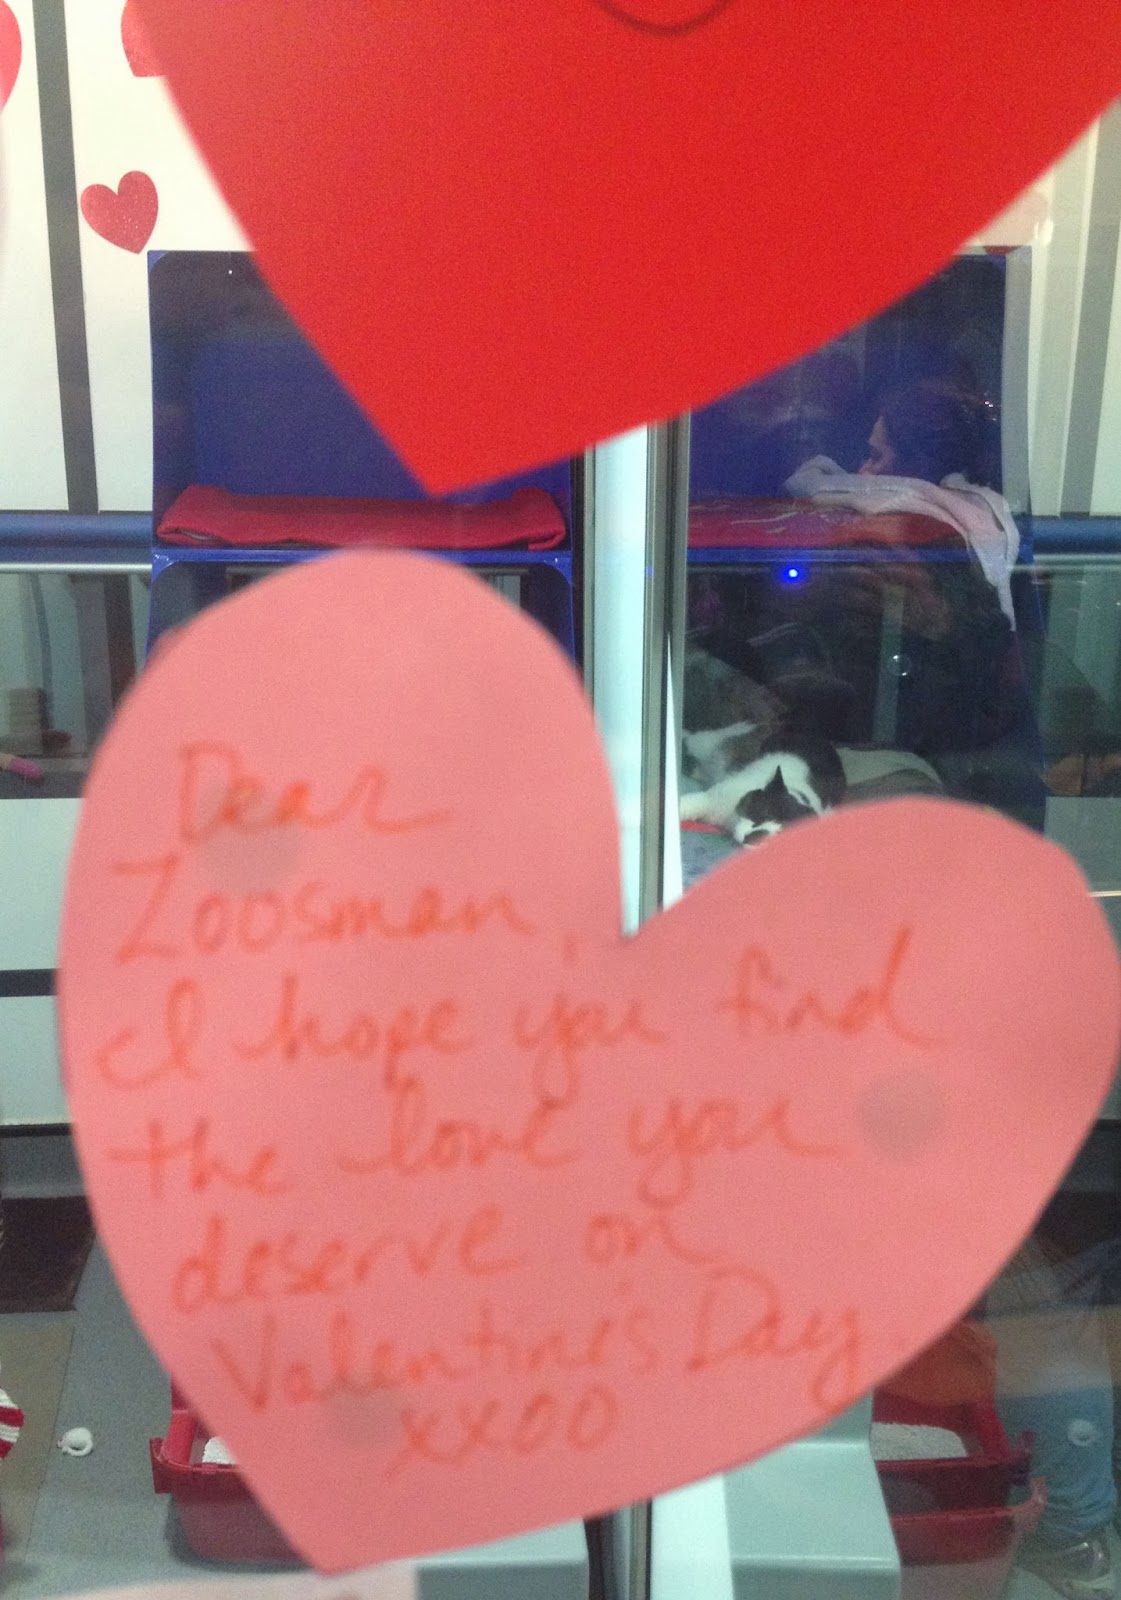 Dear
Zoosman,
I hope you find
the love you
deserve on
Valentine's Day.
xxoo